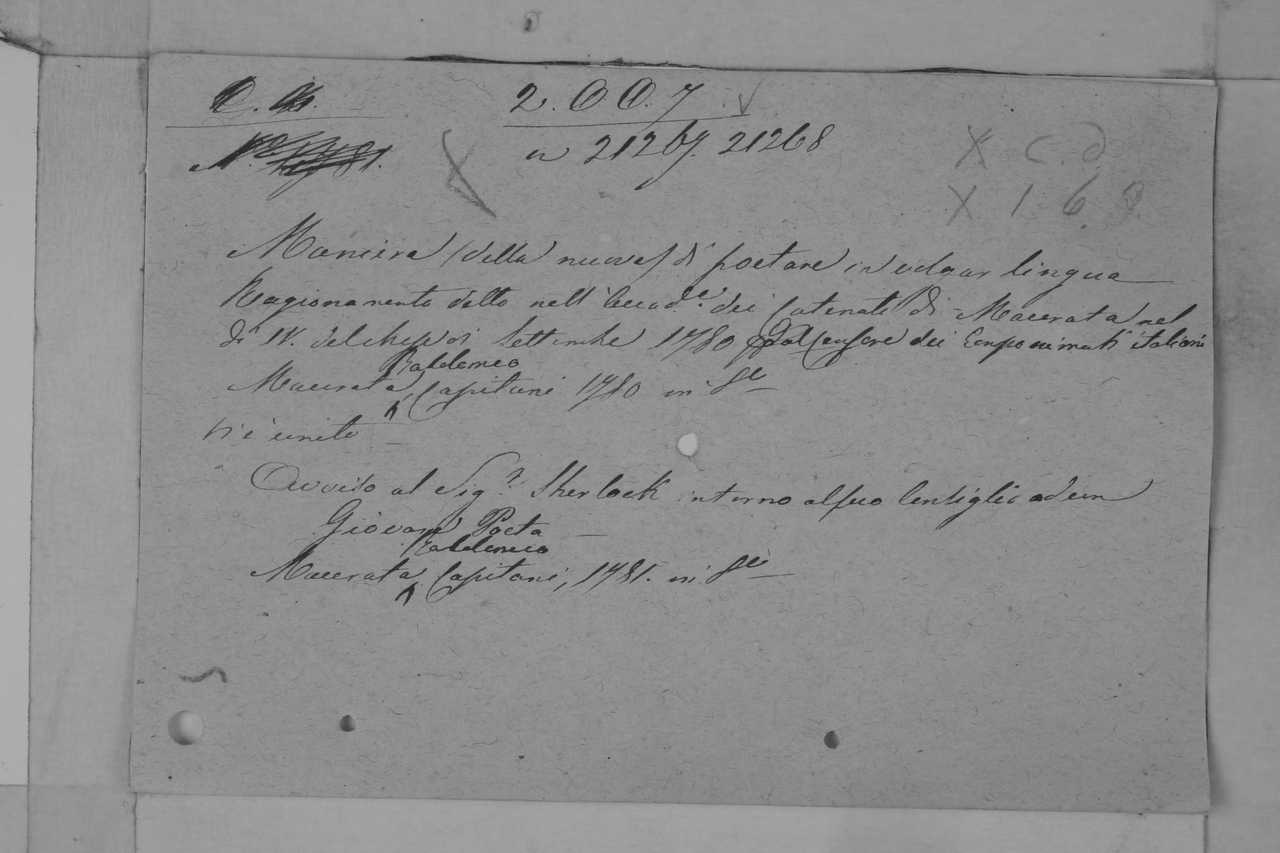 2. O O. 7
n 21267. 21268
X C. D
X 1 6
Maniera (della nuova) di poetare in volgar lingua
Ragionamento detto nell'Accad.ᵃ dei Catenati di Macerata nel
dì IV. del mese di Settembre 1780 dal Censore dei Componimenti italiani
Macerata Capitani 1780 in 8º
Vi è unito
Avviso al Sig.ʳ Sherlock intorno al suo Consiglio ad un
Giovane Poeta
Macerata Capitani, 1781. in 8º